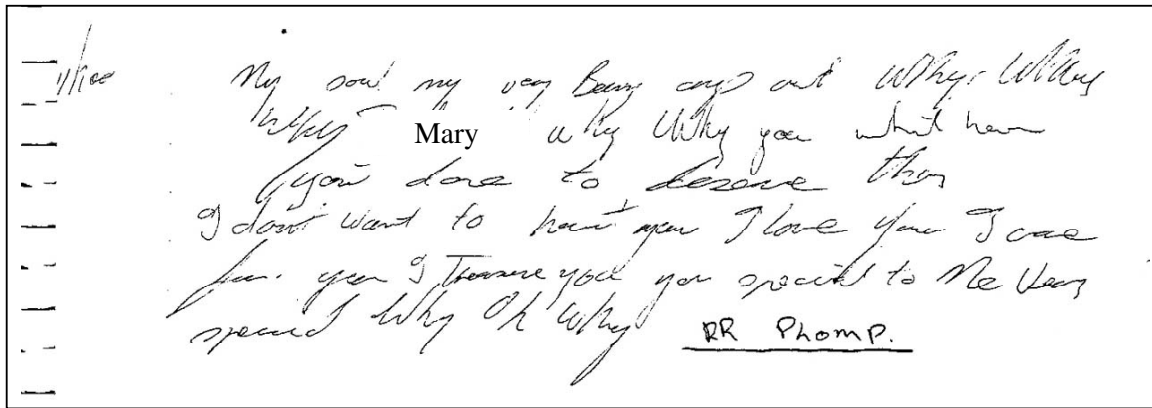 11/1/00 My soul my very Being crys out Why Why
Why Mary Why Why you what have
you done to deserve this
I dont want to hurt you I love you I care
for you I Treasure you you special to Me Very
special Why Oh Why RR Phomp.